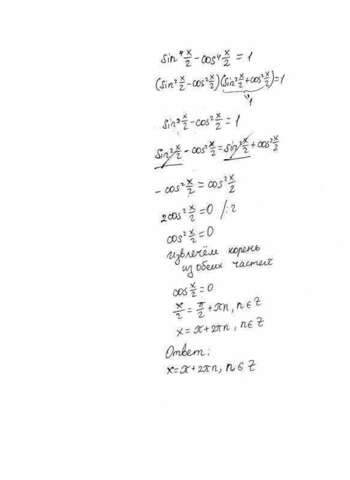 sin⁴ x/2 - cos⁴ x/2 = 1
(sin² x/2 - cos² x/2)(sin² x/2 + cos² x/2) = 1
1
sin² x/2 - cos² x/2 = 1
sin² x/2 - cos² x/2 = sin² x/2 + cos² x/2
- cos² x/2 = cos² x/2
2cos² x/2 = 0 /:2
cos² x/2 = 0
извлечём корень
из обеих частей
cos x/2 = 0
x/2 = π/2 + πn, n∈Z
x = π + 2πn, n∈Z
Ответ:
x = π + 2πn, n∈Z